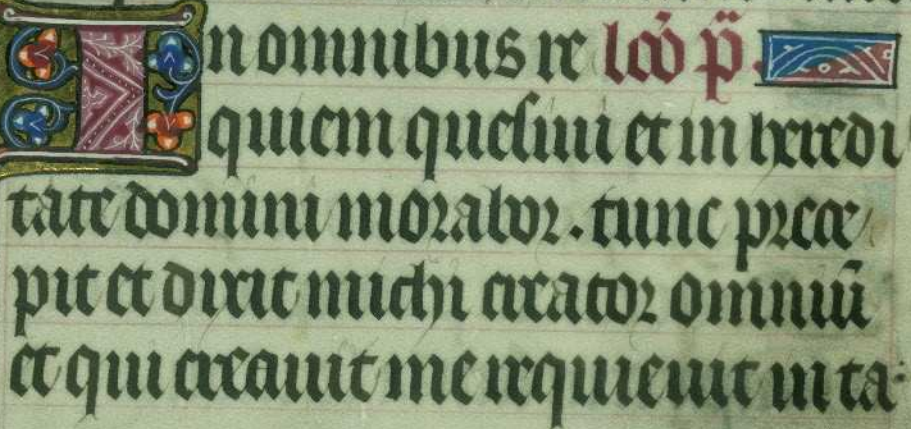 In omnibus re lcō p̄.
quiem quesiui et in heredi
tate domini morabor. tunc prece
pit et dixit michi creator omniū
et qui creauit me requieuit in ta